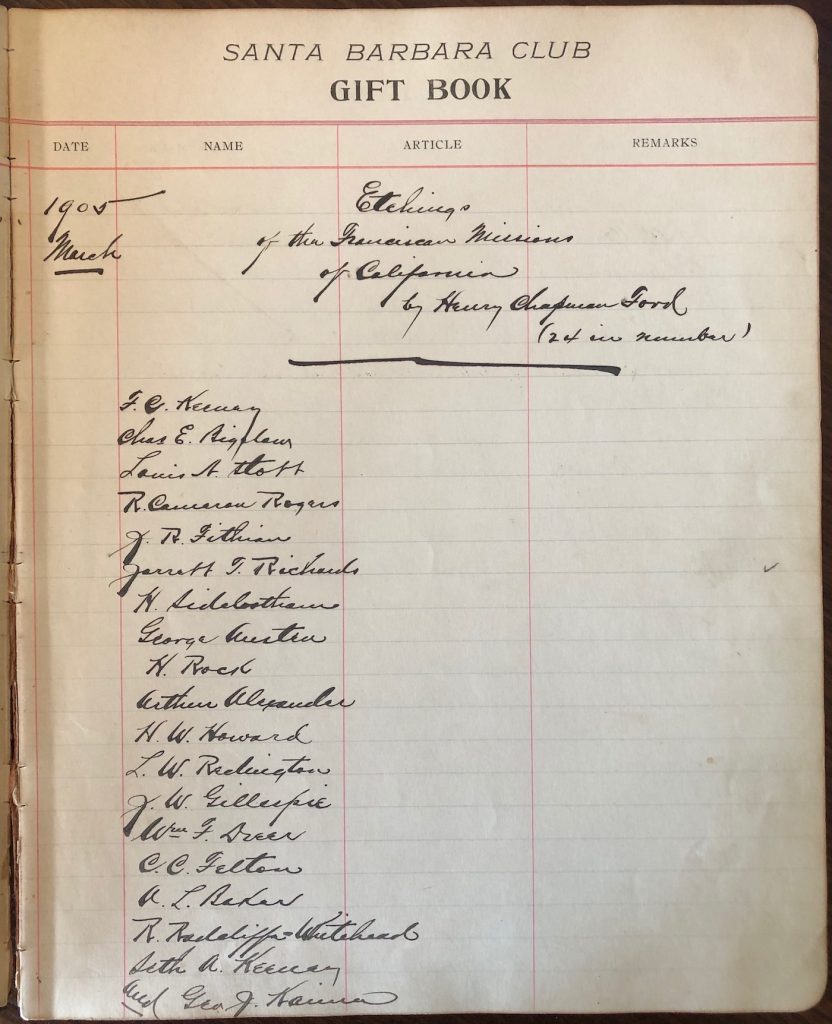 SANTA BARBARA CLUB
GIFT BOOK
DATE NAME ARTICLE REMARKS
1905 Etchings
March of the Franciscan Missions
of California
by Henry Chapman Ford
(24 in number)
F. C. Keenay
Chas E. Bigelow
Louis A. Stott
R. Cameron Rogers
J. R. Fithian
Jarrett T. Richards
H. Sidebotham
George Austen
H. Rock
Arthur Alexander
H. W. Howard
L. W. Redington
J. W. Gillespie
Wm F. Dreer
C. C. Felton
A. L. Baker
R. Radcliffe-Whitehead
Seth A. Keenay
and Geo J.